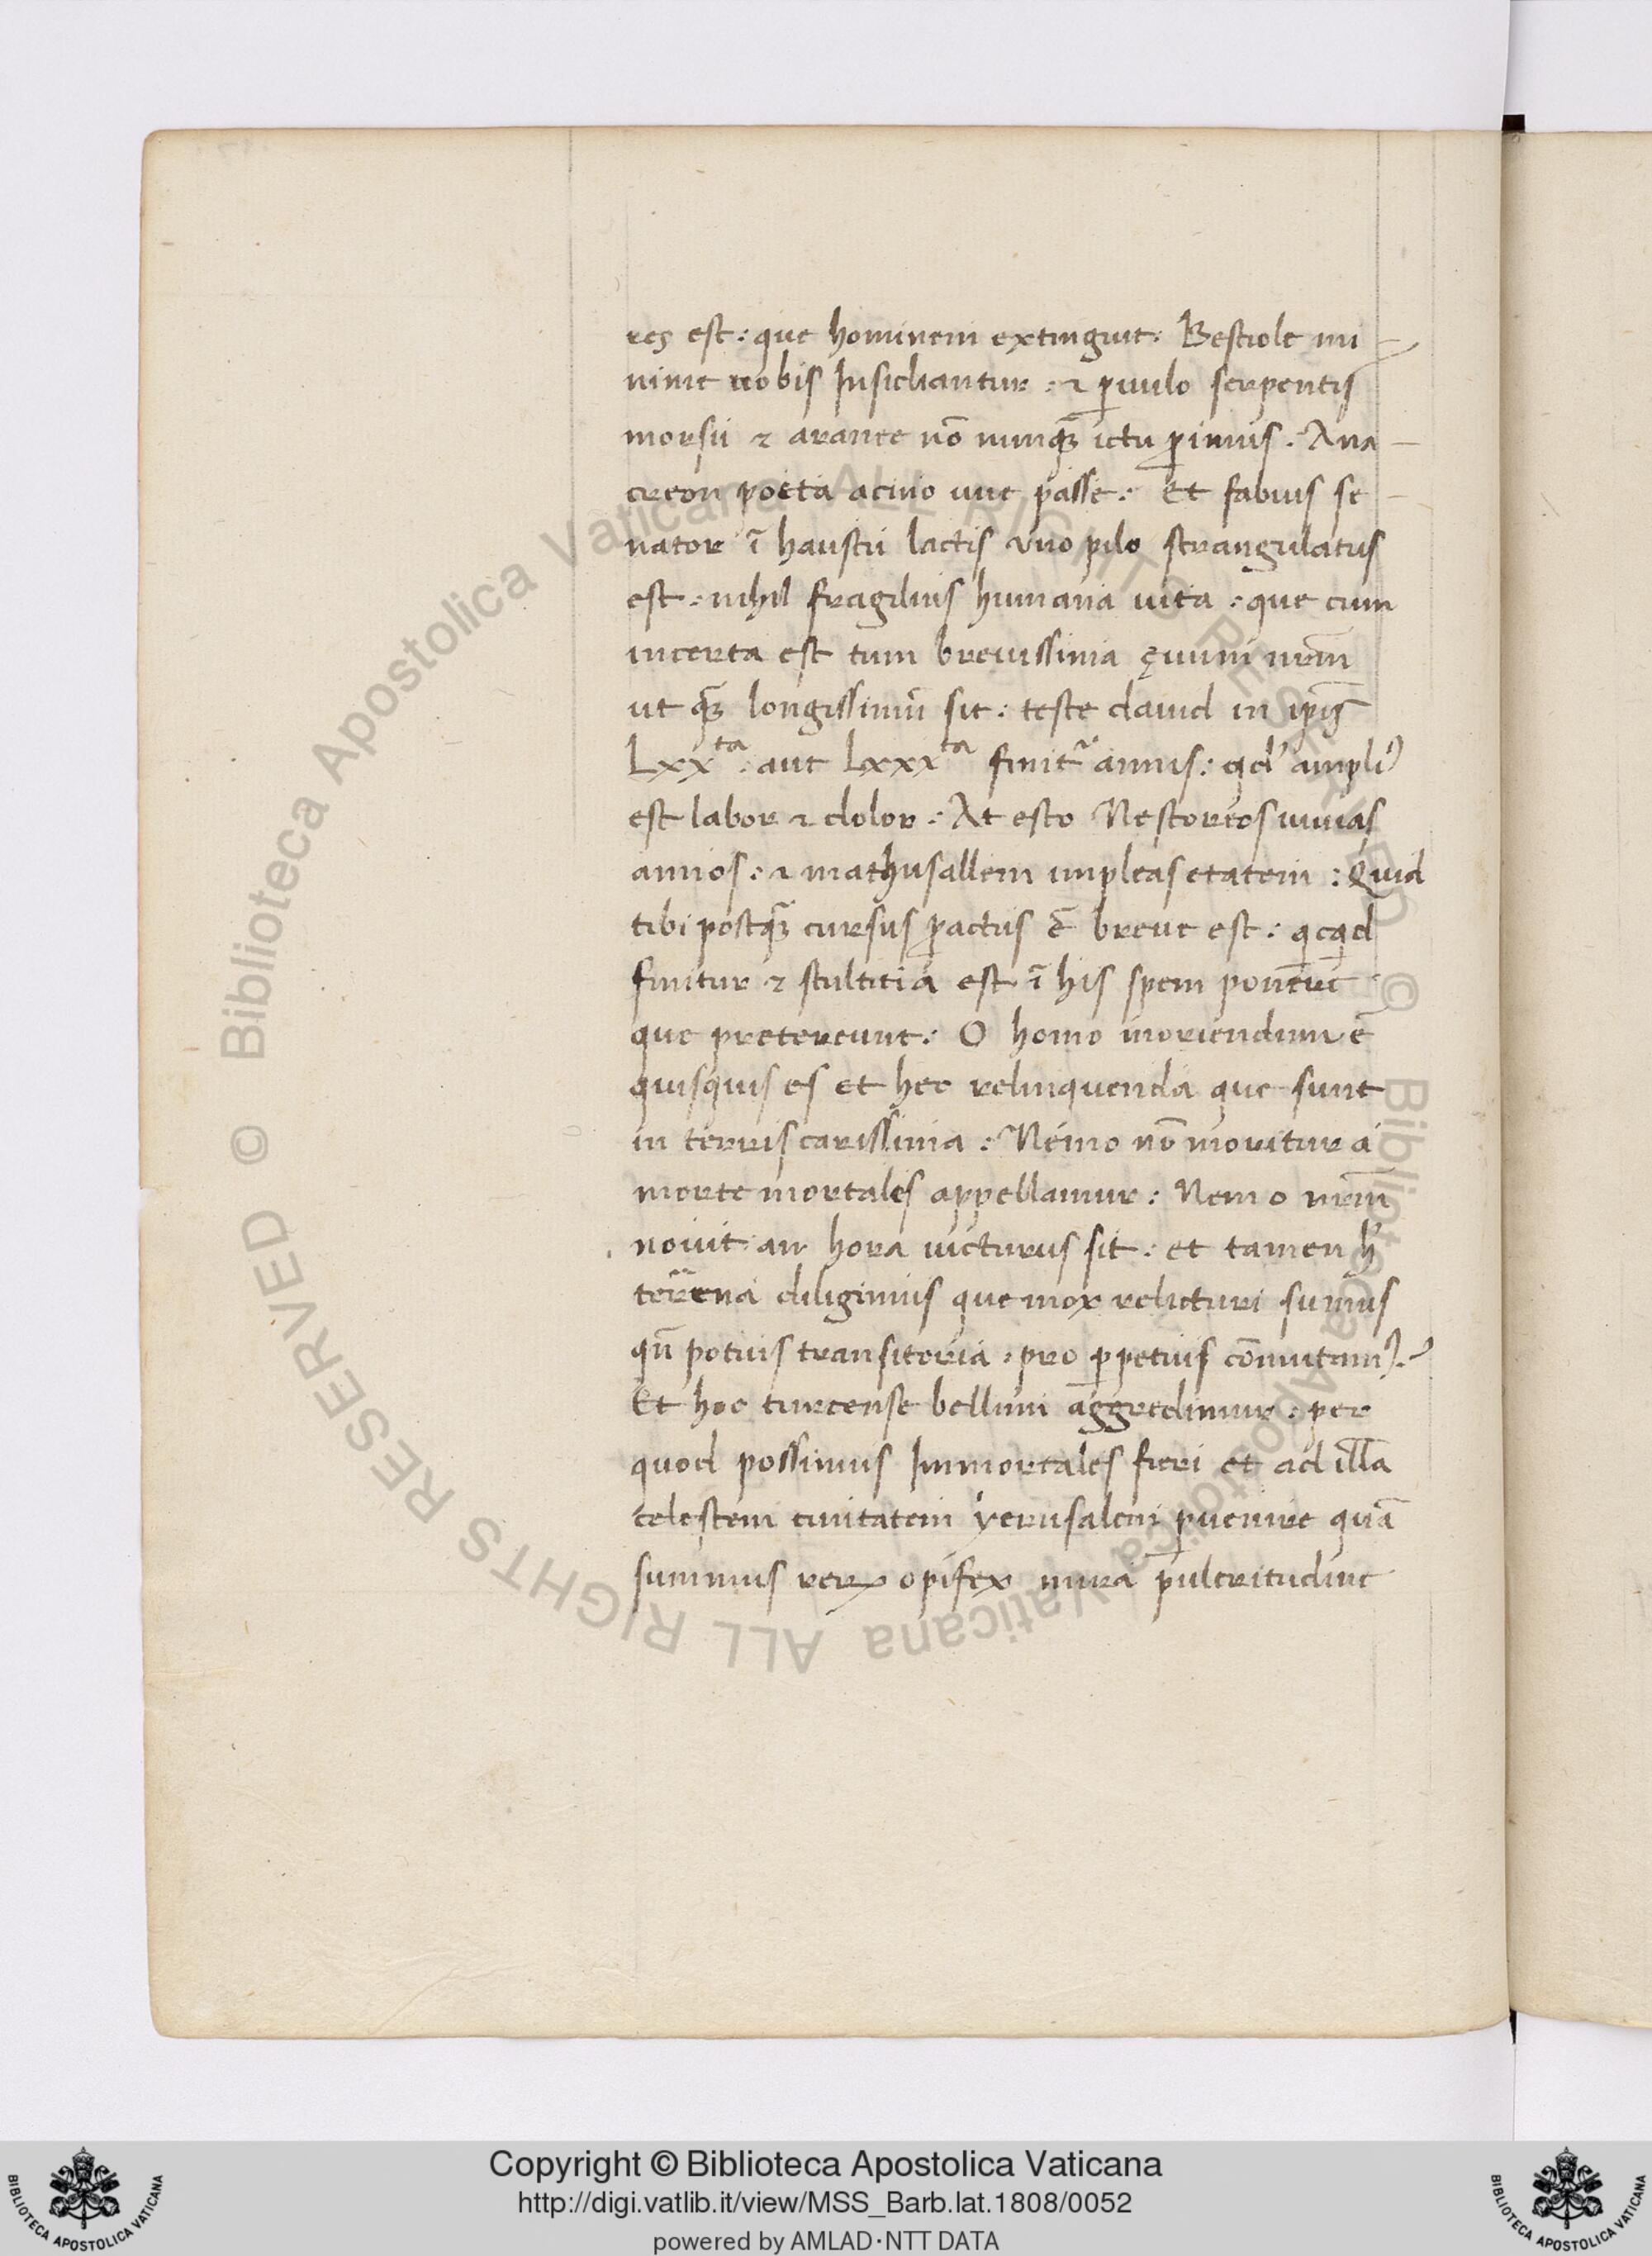 res est: que hominem extinguit: Bestiole mi
nime nobis Insidiantur: ⁊ ꝑuulo serpentis
morsu ⁊ aranee nõ nunqꝫ ictu ꝑimus. Ana
creon poeta acino uue passe: Et fabius se
nator ĩ haustu lactis vno pilo strangulatus
est: nihil fragilius humana uita: que cum
incerta est tum breuissima ęuum nrm̃
ut qꝫ longissimũ sit: teste dauid in ip̃is
Lxxta: aut Lxxxta finit᷑ annis: qd' ampliꝯ
est labor ⁊ dolor: At esto Nestoreos uiuas
annos: ⁊ mathusallem impleas etatem: Quid
tibi postqꝫ cursus ꝑactus ẽ breue est: qcqd
finitur ⁊ stultitia est ĩ his spem ponere
que pretereunt: O homo moriendum ẽ
quisquis es et hec relinquenda que sunt
in terris carissima: Nemo nõ moritur a
morte mortales appellamur: Nemo nrm̃
nouit an hora uicturus sit: et tamen h'
terrena diligimus que mox relicturi sumus
qñ potius transitoria: pro ꝑpetuis cõmutamꝯ.
Et hoc turcense bellum aggredimur: per
quod possimus Immortales fieri et ad illã
celestem ciuitatem yerusalem ꝑuenire quã
summus rerꝝ opifex mira pulcritudine
Copyright © Biblioteca Apostolica Vaticana
http://digi.vatlib.it/view/MSS_Barb.lat.1808/0052
powered by AMLAD·NTT DATA
BIBLIOTECA APOSTOLICA VATICANA
BIBLIOTECA APOSTOLICA VATICANA
© Biblioteca Apostolica Vaticana ALL RIGHTS RESERVED © Biblioteca Apostolica Vaticana ALL RIGHTS RESERVED